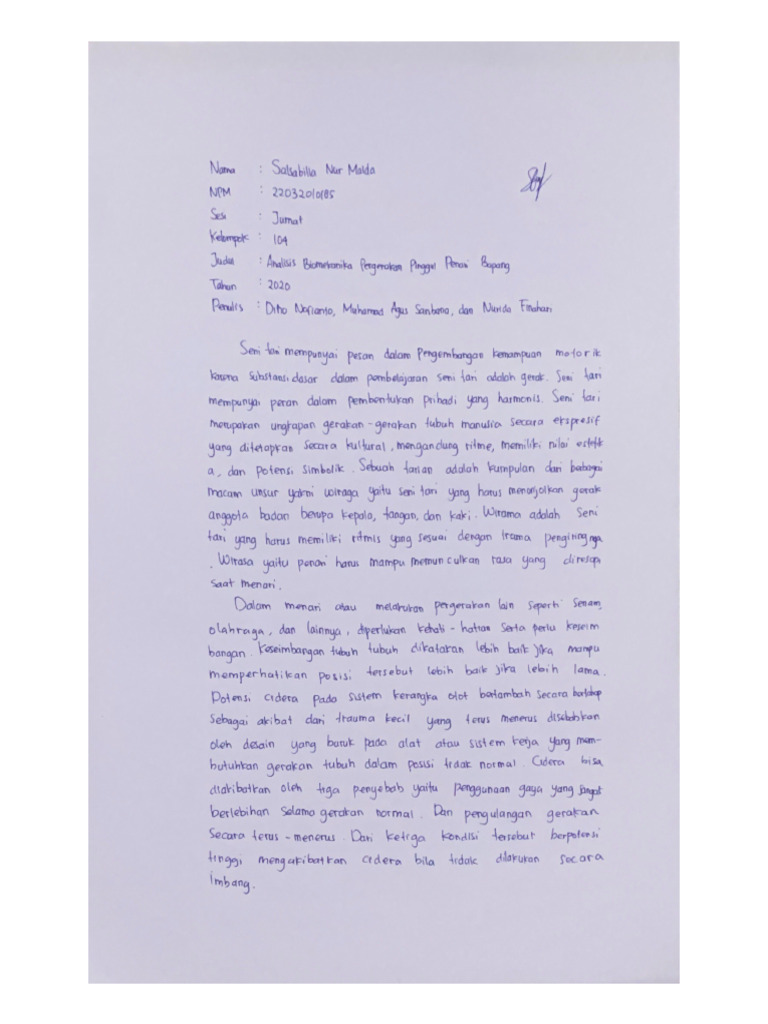 Nama : Salsabilla Nur Maida
NPM : 22032010185
Sesi : Jumat
Kelompok : 104
Judul : Analisis Biomekanika Pergerakan Pinggul Penari Bapang
Tahun : 2020
Penulis : Dito Nofianto, Muhamad Agus Sanbona, dan Nurida Finahari
Seni tari mempunyai pesan dalam Pengembangan kemampuan motorik
karena substansi dasar dalam pembelajaran seni tari adalah gerak. Seni tari
mempunyai peran dalam pembentukan prihadi yang harmonis. Seni tari
merupakan ungkapan gerakan-gerakan tubuh manusia secara ekspresif
yang ditetapkan secara kultural, mengandung ritme, memiliki nilai estetik
a, dan potensi simbolik. Sebuah tarian adalah kumpulan dari babagai
macam unsur yakni wiraga yaitu seni tari yang harus menonjolkan gerak
anggota badan berupa kepala, tangan, dan kaki. Wirama adalah seni
tari yang harus memiliki ritmis yang sesuai dengan irama pengiringnya
. Wirasa yaitu penari harus mampu memunculkan rasa yang diresapi
saat menari.
Dalam menari atau melakukan pergerakan lain seperti senam,
olahraga, dan lainnya, diperlukan kehati-hatian serta perlu keseim
bangan. Keseimbangan tubuh tubuh dikatakan lebih baik jika mampu
memperhatikan posisi tersebut lebih baik jika lebih lama.
Potensi cidera pada sistem kerangka otot bertambah secara bertahap
sebagai akibat dari trauma kecil yang terus menerus disebabkan
oleh desain yang buruk pada alat atau sistem kerja yang mem-
butuhkan gerakan tubuh dalam posisi tidak normal. Cidera bisa
diakibatkan oleh tiga penyebab yaitu penggunaan gaya yang sangat
berlebihan selama gerakan normal. Dan pengulangan gerakan
secara terus-menerus. Dari ketiga kondisi tersebut berpotensi
tinggi mengakibatkan cidera bila tidak dilakukan secara
imbang.